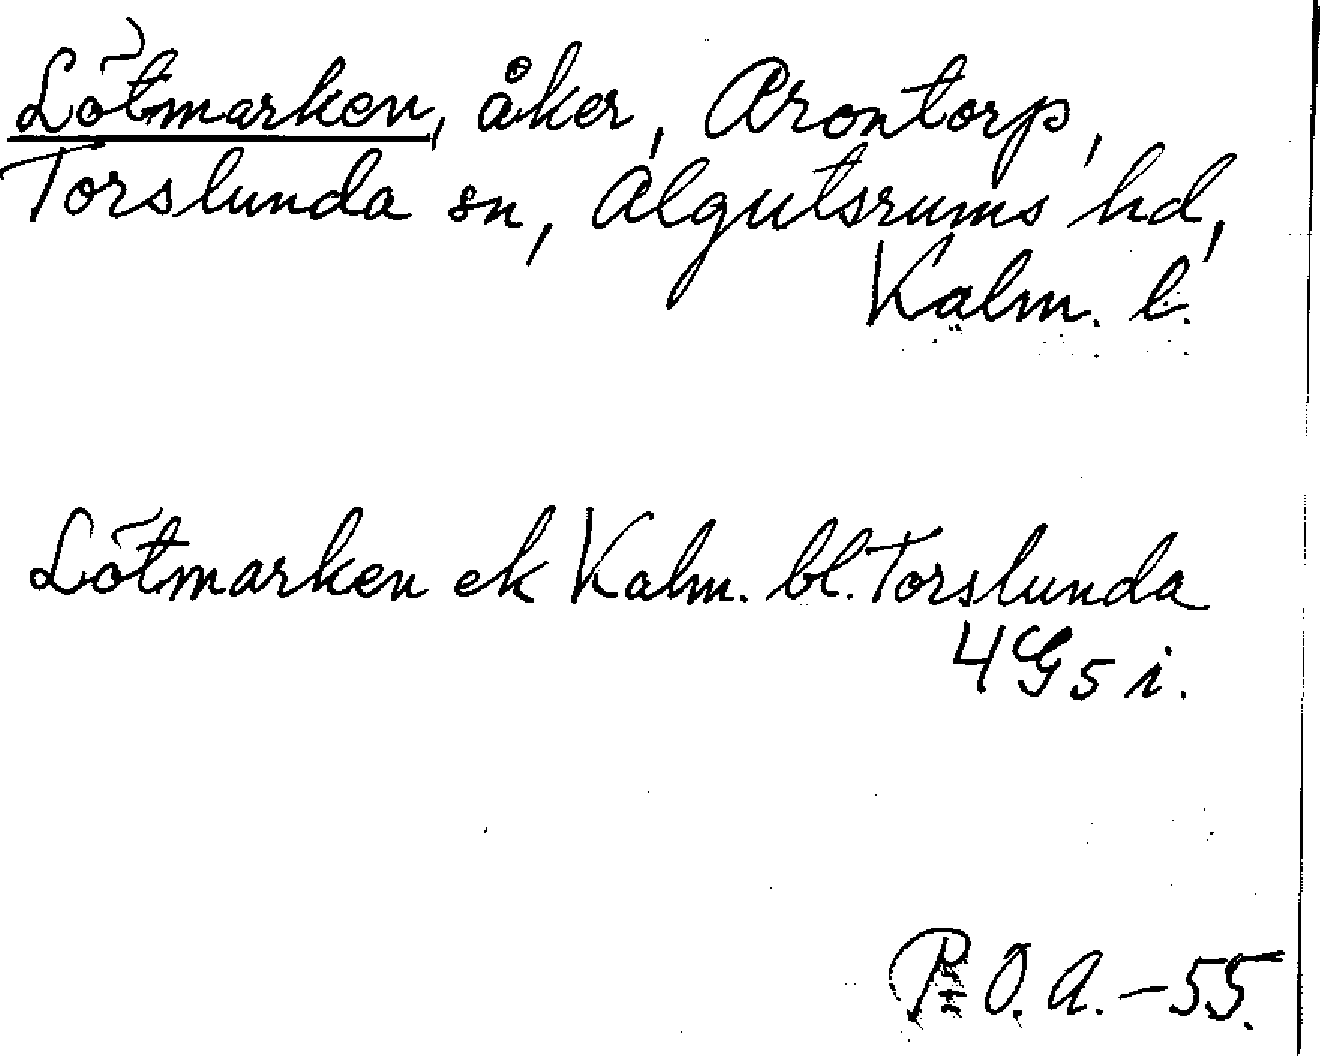 Lötmarken, åker, Arontorp,
Torslunda sn, Algutsrums hd,
Kalm. l.
Lötmarken ek Kalm. bl. Torslunda
4G5i.
P. O. A. – 55.